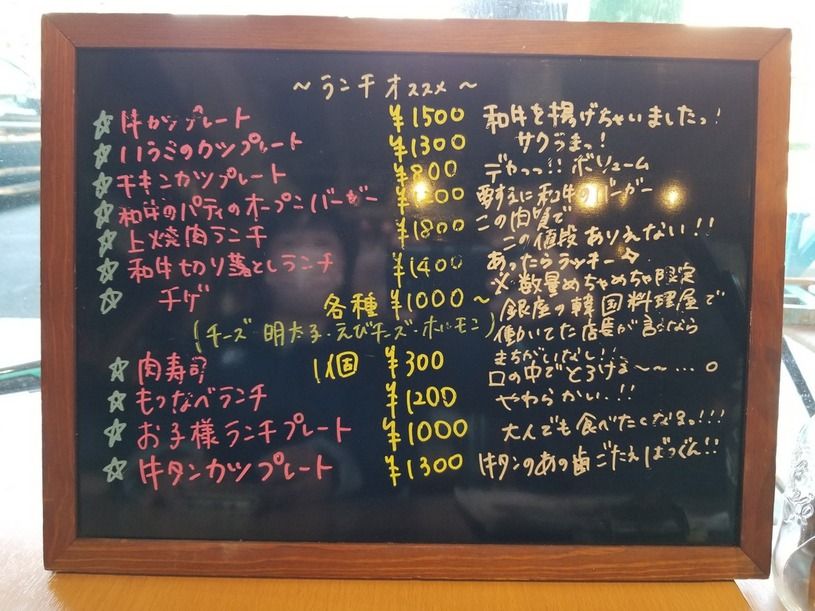 ～ランチオススメ～
☆ 牛カツプレート ¥1500 和牛を揚げちゃいましたっ!
☆ ハラミのカツプレート ¥1300 サクうまっ!
☆ チキンカツプレート ¥800 デカっっ!! ボリューム
☆ 和牛のパティのオープンバーガー ¥1200 要するに和牛のバーガー
☆ 上焼肉ランチ ¥1800 この肉質で
この値段ありえない!!
☆ 和牛切り落としランチ ¥1400 あったらラッキー☆
※数量めちゃめちゃ限定
☆ チゲ 各種 ¥1000～ 銀座の韓国料理屋で
(チーズ・明太子・えびチーズ・ホルモン) 働いてた店長が言うなら
まちがいなし!!
☆ 肉寿司 1個 ¥300 口の中でとろける～～…。
☆ もつなべランチ ¥1200 やわらかい!!
☆ お子様ランチプレート ¥1000 大人でも食べたくなるっ!!!
☆ 牛タンカツプレート ¥1300 牛タンのあの歯ごたえばつぐん!!